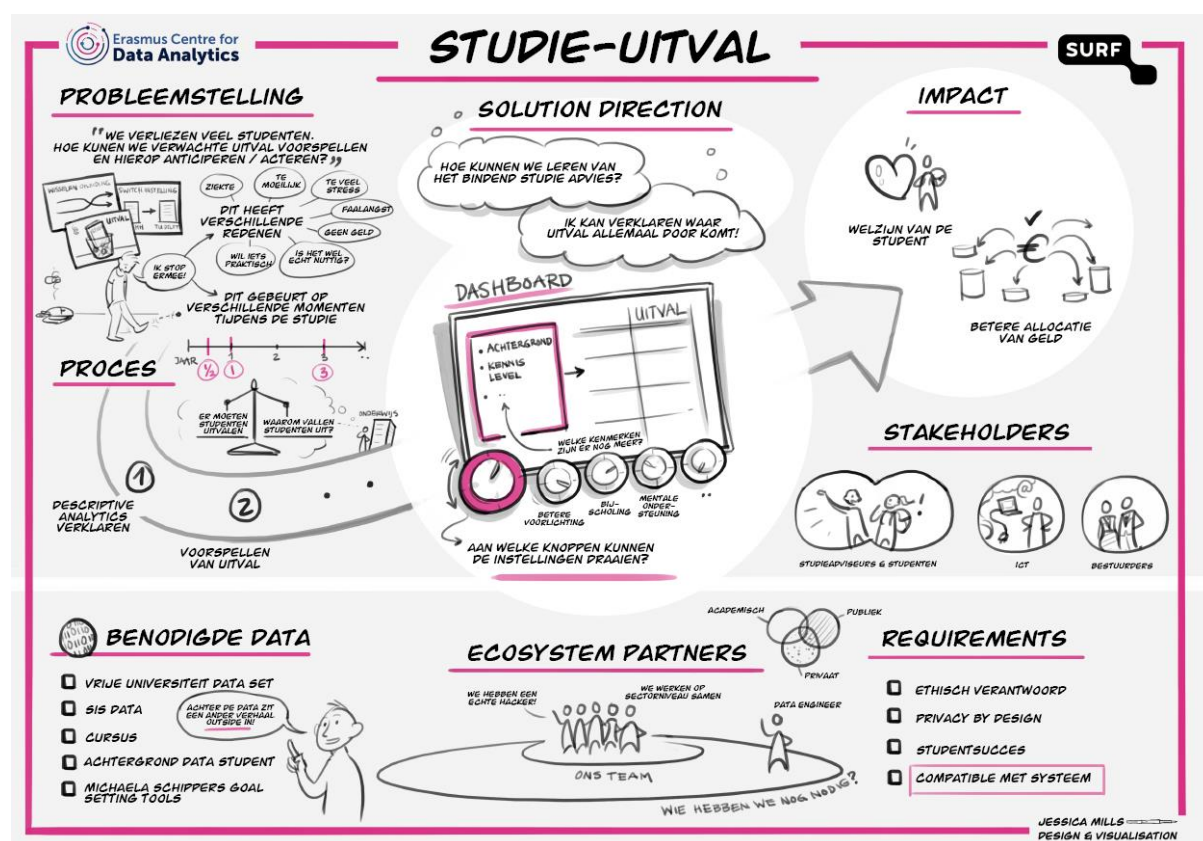 Erasmus Centre for
Data Analytics
STUDIE-UITVAL
SURF
PROBLEEMSTELLING
"WE VERLIEZEN VEEL STUDENTEN.
HOE KUNEN WE VERWACHTE UITVAL VOORSPELLEN
EN HIEROP ANTICIPEREN / ACTEREN?"
WISSELEN OPLEIDING
SWITCH INSTELLING
TU DELFT
UITVAL
ZIEKTE
TE
MOEILIJK
TE VEEL
STRESS
FAALANGST
GEEN GELD
IS HET WEL
ECHT NUTTIG?
WIL IETS
PRAKTISCH
DIT HEEFT
VERSCHILLENDE
REDENEN
IK STOP
ERMEE!
DIT GEBEURT OP
VERSCHILLENDE MOMENTEN
TIJDENS DE STUDIE
JAAR
1
2
3
..
½
1
3
PROCES
ER MOETEN
STUDENTEN
UITVALEN
WAAROM VALLEN
STUDENTEN UIT?
ONDERWIJS
1
DESCRIPTIVE
ANALYTICS
VERKLAREN
2
VOORSPELLEN
VAN UITVAL
SOLUTION DIRECTION
HOE KUNNEN WE LEREN VAN
HET BINDEND STUDIE ADVIES?
IK KAN VERKLAREN WAAR
UITVAL ALLEMAAL DOOR KOMT!
DASHBOARD
UITVAL
• ACHTERGROND
• KENNIS
LEVEL
• ..
WELKE KENMERKEN
ZIJN ER NOG MEER?
BETERE
VOORLICHTING
BIJ-
SCHOLING
MENTALE
ONDER-
STEUNING
..
AAN WELKE KNOPPEN KUNNEN
DE INSTELLINGEN DRAAIEN?
IMPACT
WELZIJN VAN DE
STUDENT
€
BETERE ALLOCATIE
VAN GELD
STAKEHOLDERS
STUDIEADVISEURS & STUDENTEN
@
ICT
BESTUURDERS
BENODIGDE DATA
VRIJE UNIVERSITEIT DATA SET
SIS DATA
CURSUS
ACHTERGROND DATA STUDENT
MICHAELA SCHIPPERS GOAL
SETTING TOOLS
ACHTER DE DATA ZIT
EEN ANDER VERHAAL
OUTSIDE IN!
ECOSYSTEM PARTNERS
ACADEMISCH
PUBLIEK
PRIVAAT
WE HEBBEN EEN
ECHTE HACKER!
WE WERKEN OP
SECTORNIVEAU SAMEN
DATA ENGINEER
ONS TEAM
WIE HEBBEN WE NOG NODIG?
REQUIREMENTS
ETHISCH VERANTWOORD
PRIVACY BY DESIGN
STUDENTSUCCES
COMPATIBLE MET SYSTEEM
JESSICA MILLS
DESIGN & VISUALISATION